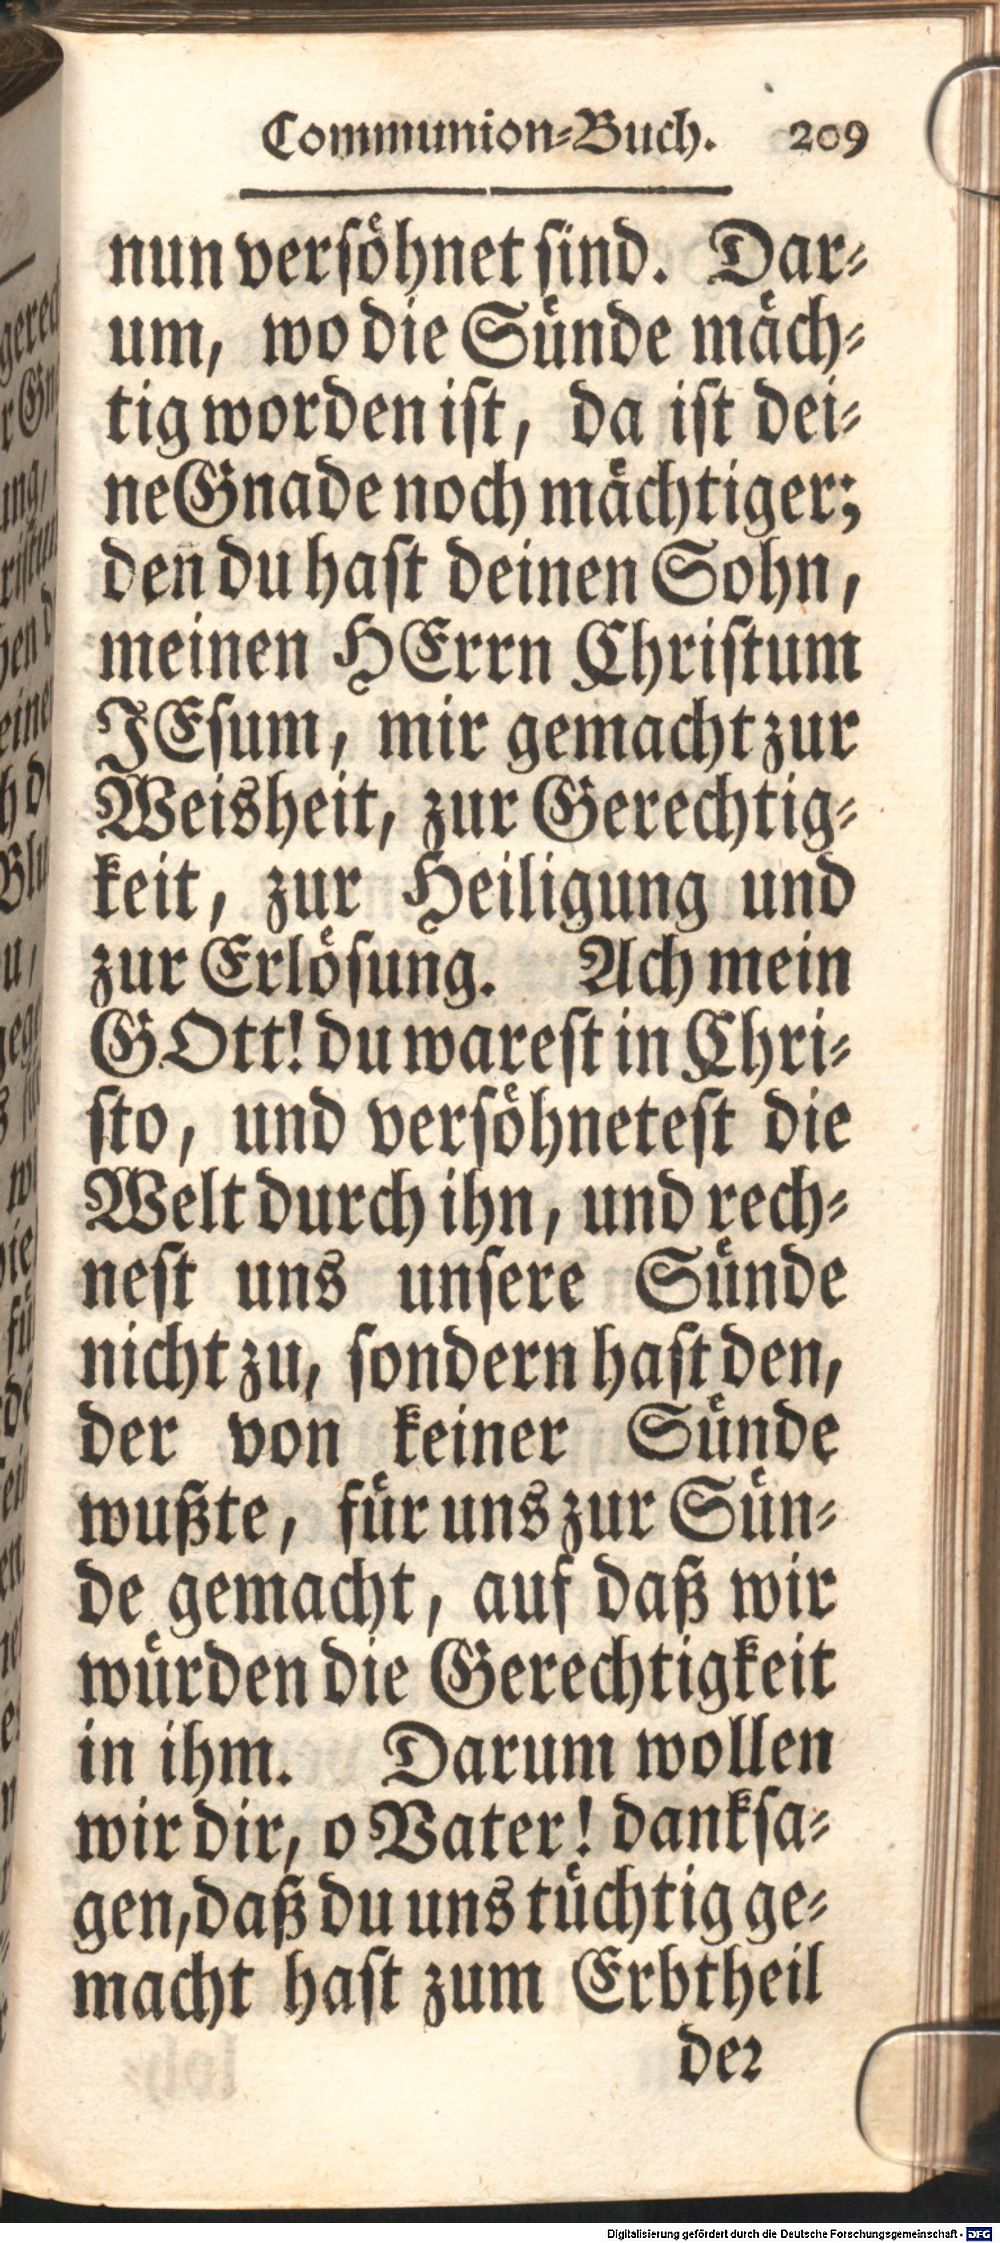 Communion-Buch. 209
nun versöhnet sind. Dar-
um, wo die Sünde mäch-
tig worden ist, da ist dei-
ne Gnade noch mächtiger;
den̄ du hast deinen Sohn,
meinen HErrn Christum
JEsum, mir gemacht zur
Weisheit, zur Gerechtig-
keit, zur Heiligung und
zur Erlösung. Ach mein
GOtt! du warest in Chri-
sto, und versöhnetest die
Welt durch ihn, und rech-
nest uns unsere Sünde
nicht zu, sondern hast den,
der von keiner Sünde
wußte, für uns zur Sün-
de gemacht, auf daß wir
würden die Gerechtigkeit
in ihm. Darum wollen
wir dir, o Vater! danksa-
gen, daß du uns tüchtig ge-
macht hast zum Erbtheil
der
Digitalisierung gefördert durch die Deutsche Forschungsgemeinschaft - DFG